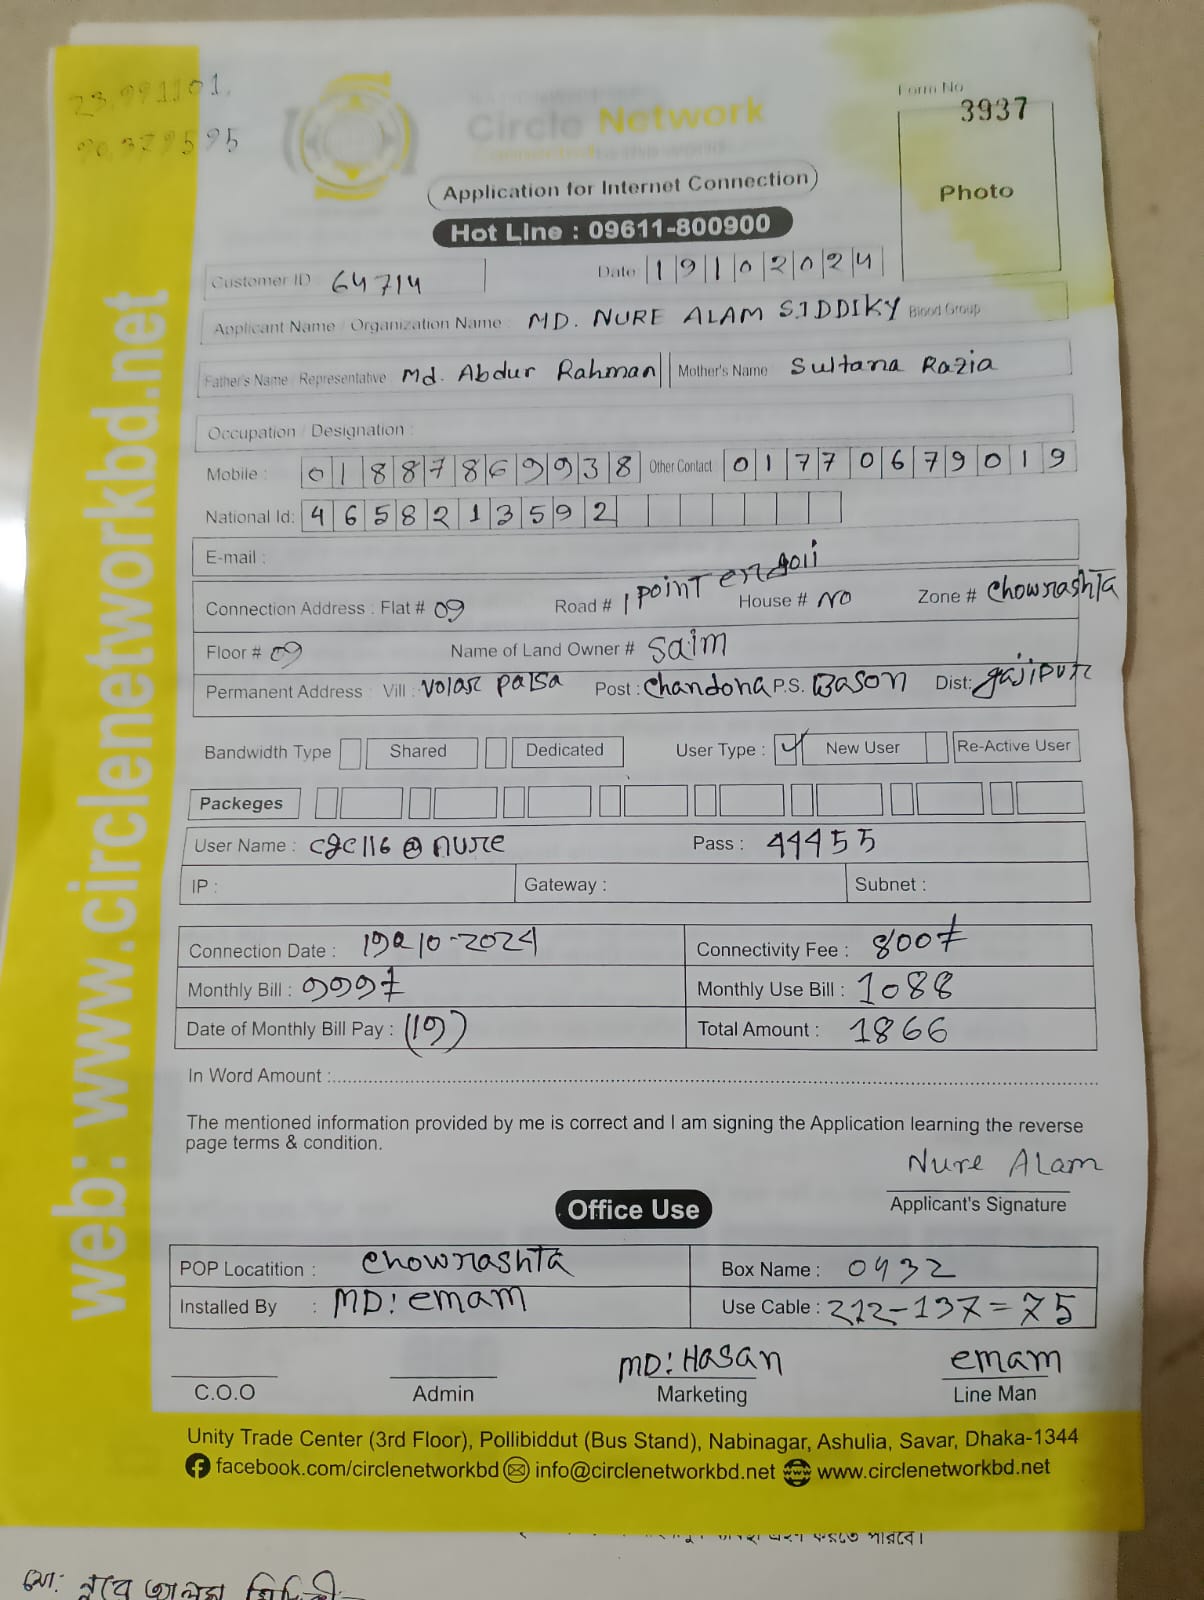 23.991101,
90.379595
Circle Network
Form No
3937
Photo
Application for Internet Connection
Hot Line : 09611-800900
Customer ID 64714
Date 19102024
Applicant Name / Organization Name : MD. NURE ALAM SIDDIKY Blood Group
Father's Name / Representative Md. Abdur Rahman Mother's Name Sultana Razia
Occupation / Designation :
Mobile : 01887869938 Other Contact 01770679019
National Id: 4658213592
E-mail :
Connection Address : Flat # 09 Road # 1 point House # NO Zone # Chowrashta
Floor # 09 Name of Land Owner # Saim
Permanent Address : Vill : Post : Chandona P.S. Bason Dist: gajipur
Bandwidth Type Shared Dedicated User Type : ✓ New User Re-Active User
Packeges
User Name : cgc116@nure Pass : 44455
IP : Gateway : Subnet :
Connection Date : Connectivity Fee : 800
Monthly Bill : Monthly Use Bill : 1088
Date of Monthly Bill Pay : (19) Total Amount : 1866
In Word Amount :
The mentioned information provided by me is correct and I am signing the Application learning the reverse
page terms & condition.
Nure Alam
Applicant's Signature
Office Use
POP Locatition : Chowrashta Box Name : 0932
Installed By : MD: emam Use Cable : 212-137=75
MD: Hasan emam
C.O.O Admin Marketing Line Man
Unity Trade Center (3rd Floor), Pollibiddut (Bus Stand), Nabinagar, Ashulia, Savar, Dhaka-1344
facebook.com/circlenetworkbd info@circlenetworkbd.net www.circlenetworkbd.net
web: www.circlenetworkbd.net
করতে পারবে।
মো: নুরে আলম সিদ্দিকী